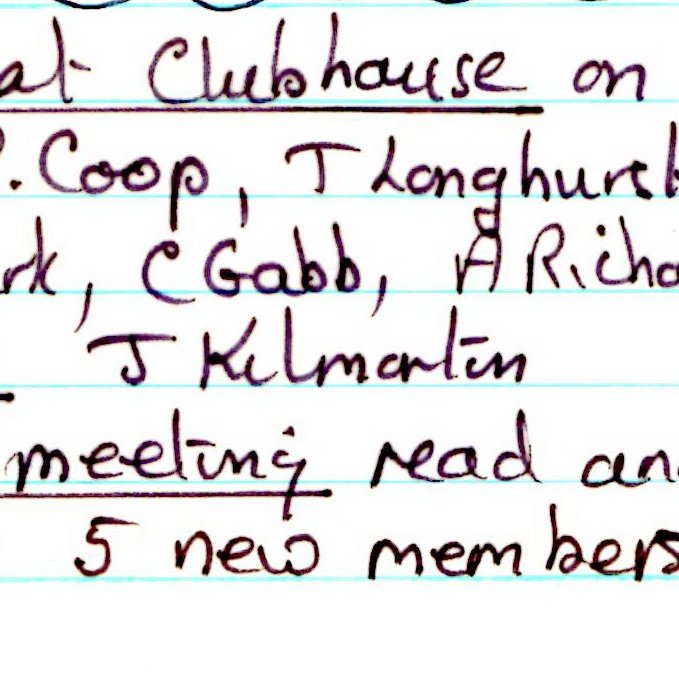 at Clubhouse on
P. Coop, T Longhurst
rk, C Gabb, A Richa
J Kilmartin
meeting read an
5 new members